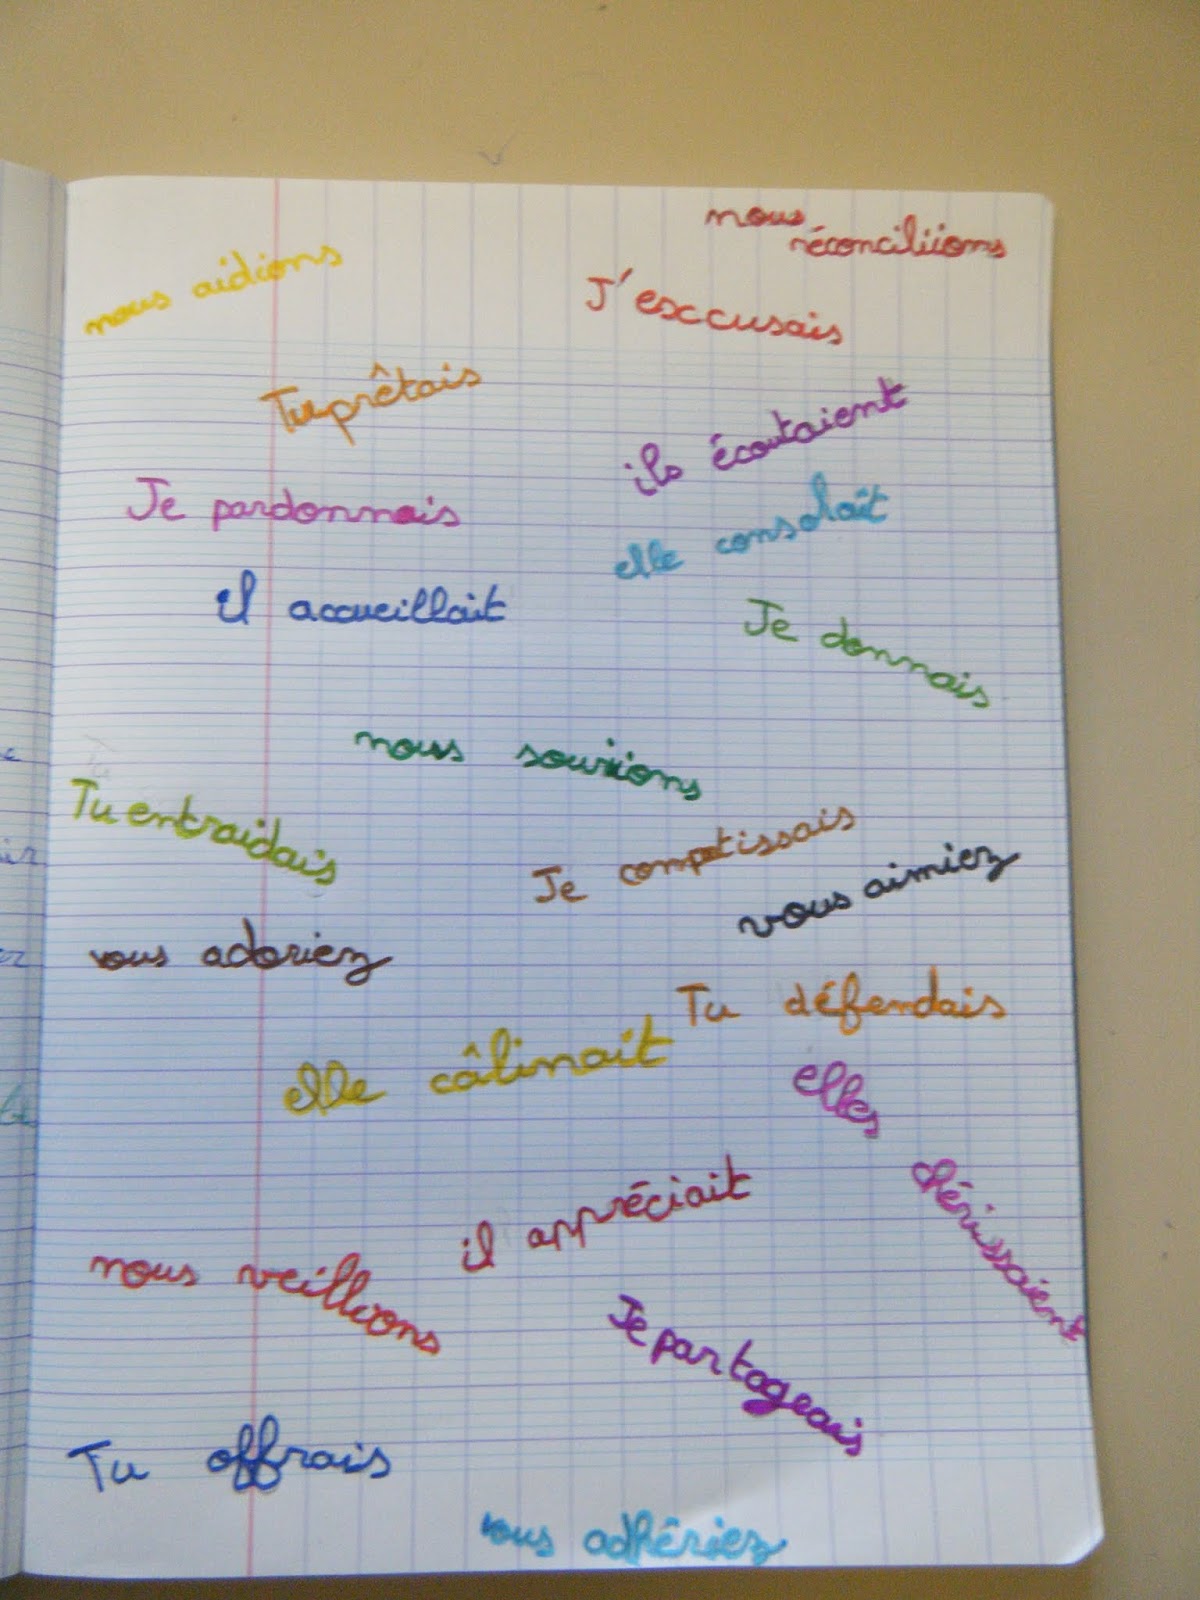 nous
réconciliions
nous aidions
J'esccusais
Tu prêtais
ils écoutaient
Je pardonnais
elle consolait
il accueillait
Je donnais
nous souriions
Tu entraidais
Je compatissais
vous aimiez
vous adoriez
Tu défendais
elle câlinait
elles
chérissaient
il appréciait
nous veillions
Je partageais
Tu offrais
vous adhériez